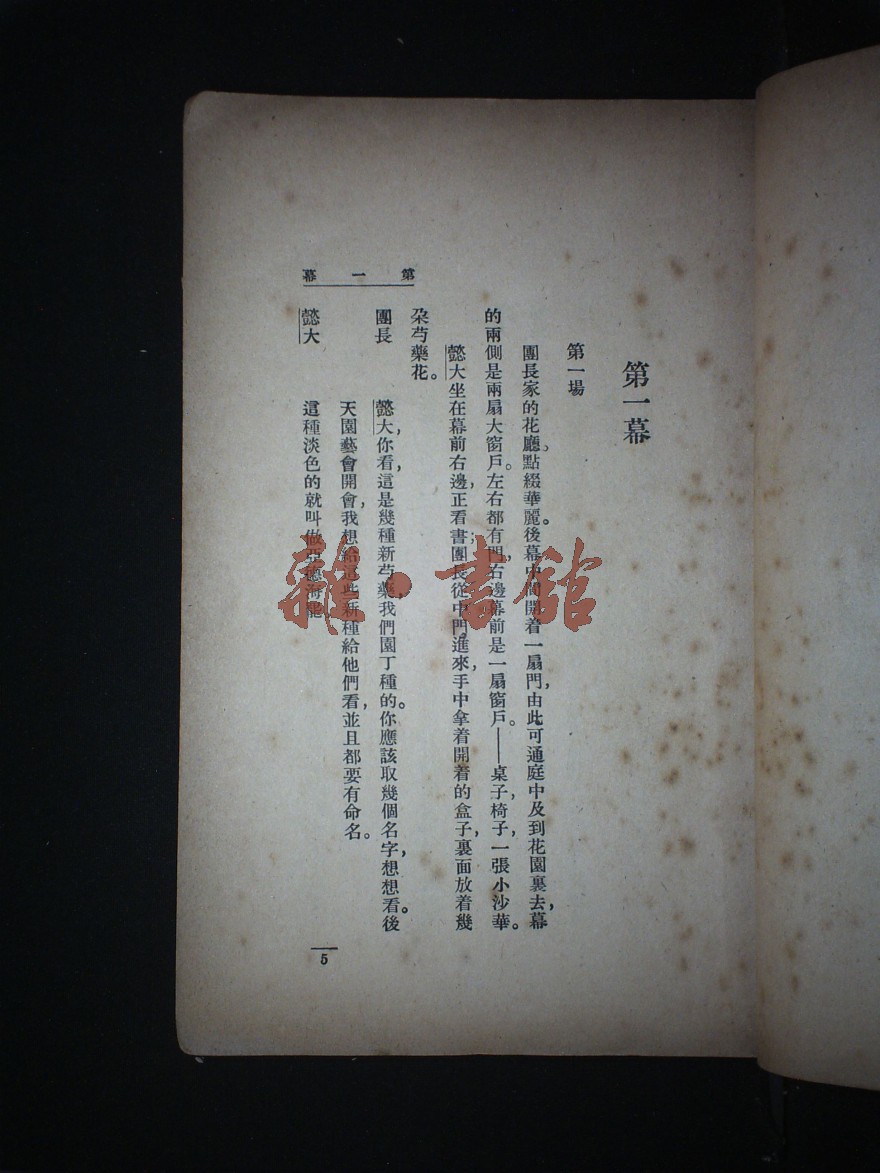 第一幕
第一場
團長家的花廳。點綴華麗。後幕中間開着一扇門，由此可通庭中及到花園裏去，幕
的兩側是兩扇大窗戶。左右都有門，右邊幕前是一扇窗戶。——桌子，椅子，一張小沙華。
懿大坐在幕前右邊，正看書；團長從中門進來，手中拿着開着的盒子，裏面放着幾
朶芍藥花。
團長 懿大，你看，這是幾種新芍藥，我們園丁種的。你應該取幾個名字，想想看。後
天園藝會開會，我想給這些新種給他們看，並且都要有命名。
懿大 這種淡色的就叫做亞德海
第一幕
5
雜·書館